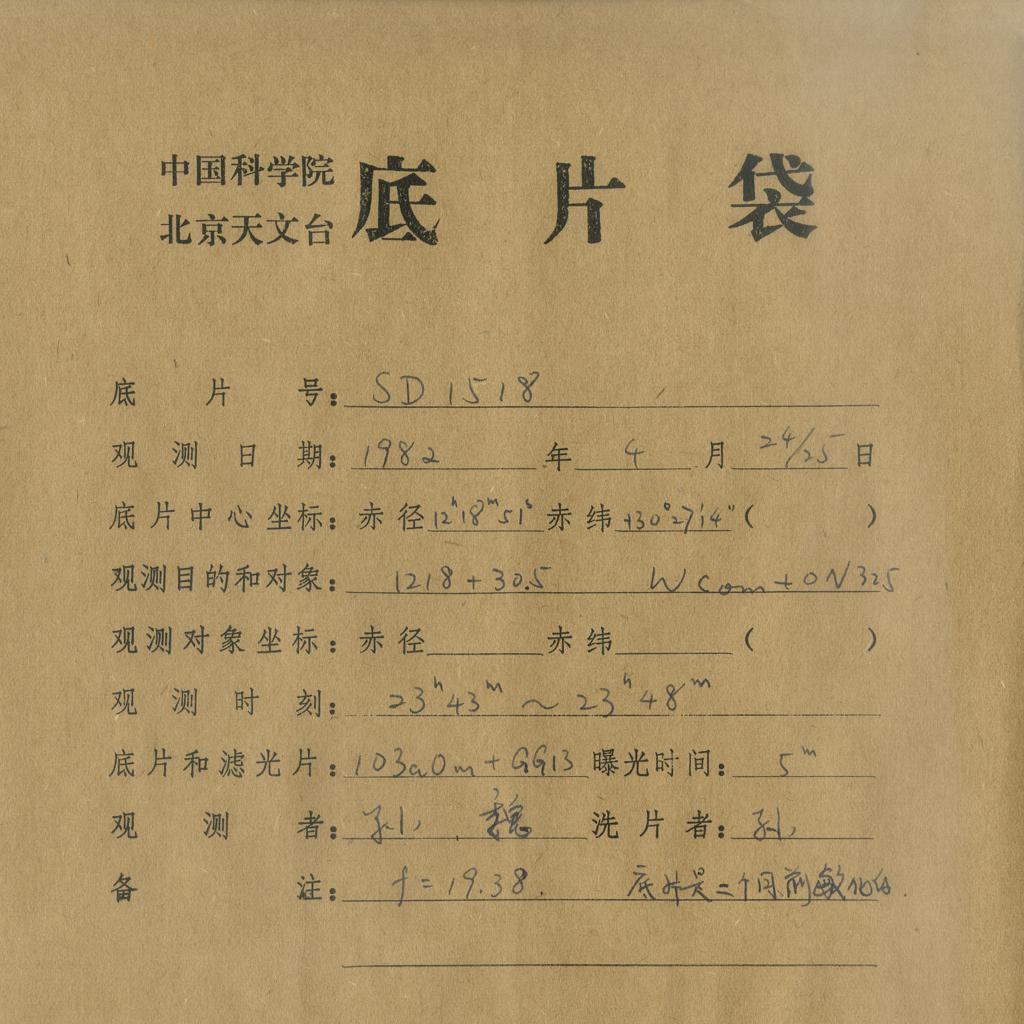 中国科学院
北京天文台
底片袋
底片号: SD1518
观测日期: 1982年4月24/25日
底片中心坐标: 赤径12ʰ18ᵐ51ˢ赤纬+30°27′14″( )
观测目的和对象: 1218+30.5 W Com+ON325
观测对象坐标: 赤径 赤纬 ( )
观测时刻: 23ʰ43ᵐ~23ʰ48ᵐ
底片和滤光片: 103aOm+GG13 曝光时间: 5ᵐ
观测者: 孙, 魏 洗片者: 孙
备注: f=19.38. 底片是二个月前敏化的.